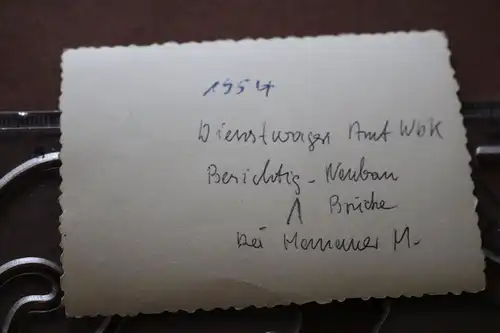 1954
Dienstwagen Amt WbK
Besichtig. Neubau
Brücke
bei Hemauer M.